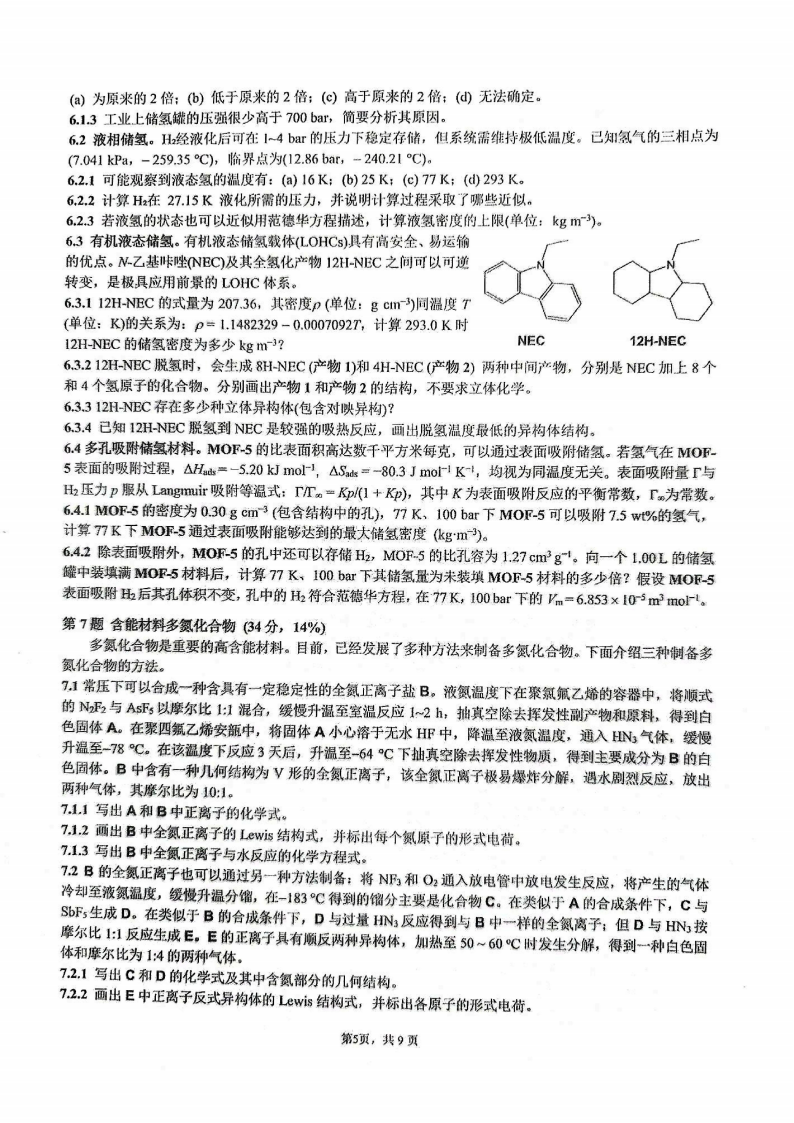 (a) 为原来的 2 倍；(b) 低于原来的 2 倍；(c) 高于原来的 2 倍；(d) 无法确定。
6.1.3 工业上储氢罐的压强很少高于 700 bar，简要分析其原因。
6.2 液相储氢。H₂经液化后可在 1~4 bar 的压力下稳定存储，但系统需维持极低温度。已知氢气的三相点为
(7.041 kPa，−259.35 °C)，临界点为(12.86 bar，−240.21 °C)。
6.2.1 可能观察到液态氢的温度有：(a) 16 K；(b) 25 K；(c) 77 K；(d) 293 K。
6.2.2 计算 H₂在 27.15 K 液化所需的压力，并说明计算过程采取了哪些近似。
6.2.3 若液氢的状态也可以近似用范德华方程描述，计算液氢密度的上限(单位：kg m⁻³)。
6.3 有机液态储氢。有机液态储氢载体(LOHCs)具有高安全、易运输
的优点。N-乙基咔唑(NEC)及其全氢化产物 12H-NEC 之间可以可逆
转变，是极具应用前景的 LOHC 体系。
6.3.1 12H-NEC 的式量为 207.36，其密度ρ (单位：g cm⁻³)同温度 T
(单位：K)的关系为：ρ = 1.1482329 − 0.0007092T，计算 293.0 K 时
12H-NEC 的储氢密度为多少 kg m⁻³？
N
N
NEC
12H-NEC
6.3.2 12H-NEC 脱氢时，会生成 8H-NEC (产物 1)和 4H-NEC (产物 2) 两种中间产物，分别是 NEC 加上 8 个
和 4 个氢原子的化合物。分别画出产物 1 和产物 2 的结构，不要求立体化学。
6.3.3 12H-NEC 存在多少种立体异构体(包含对映异构)？
6.3.4 已知 12H-NEC 脱氢到 NEC 是较强的吸热反应，画出脱氢温度最低的异构体结构。
6.4 多孔吸附储氢材料。MOF-5 的比表面积高达数千平方米每克，可以通过表面吸附储氢。若氢气在 MOF-
5 表面的吸附过程，ΔHads = −5.20 kJ mol⁻¹，ΔSads = −80.3 J mol⁻¹ K⁻¹，均视为同温度无关。表面吸附量 Γ与
H₂压力 p 服从 Langmuir 吸附等温式：Γ/Γ∞ = Kp/(1 + Kp)，其中 K 为表面吸附反应的平衡常数，Γ∞为常数。
6.4.1 MOF-5 的密度为 0.30 g cm⁻³ (包含结构中的孔)，77 K、100 bar 下 MOF-5 可以吸附 7.5 wt%的氢气，
计算 77 K 下 MOF-5 通过表面吸附能够达到的最大储氢密度 (kg·m⁻³)。
6.4.2 除表面吸附外，MOF-5 的孔中还可以存储 H₂，MOF-5 的比孔容为 1.27 cm³ g⁻¹。向一个 1.00 L 的储氢
罐中装填满 MOF-5 材料后，计算 77 K、100 bar 下其储氢量为未装填 MOF-5 材料的多少倍？假设 MOF-5
表面吸附 H₂后其孔体积不变，孔中的 H₂ 符合范德华方程，在 77 K，100 bar 下的 Vm = 6.853 × 10⁻⁵ m³ mol⁻¹。
第 7 题 含能材料多氮化合物 (34 分，14%)
多氮化合物是重要的高含能材料。目前，已经发展了多种方法来制备多氮化合物。下面介绍三种制备多
氮化合物的方法。
7.1 常压下可以合成一种含具有一定稳定性的全氮正离子盐 B。液氮温度下在聚氯氟乙烯的容器中，将顺式
的 N₂F₂ 与 AsF₅ 以摩尔比 1:1 混合，缓慢升温至室温反应 1~2 h，抽真空除去挥发性副产物和原料，得到白
色固体 A。在聚四氟乙烯安瓿中，将固体 A 小心溶于无水 HF 中，降温至液氮温度，通入 HN₃ 气体，缓慢
升温至−78 °C。在该温度下反应 3 天后，升温至−64 °C 下抽真空除去挥发性物质，得到主要成分为 B 的白
色固体。B 中含有一种几何结构为 V 形的全氮正离子，该全氮正离子极易爆炸分解，遇水剧烈反应，放出
两种气体，其摩尔比为 10:1。
7.1.1 写出 A 和 B 中正离子的化学式。
7.1.2 画出 B 中全氮正离子的 Lewis 结构式，并标出每个氮原子的形式电荷。
7.1.3 写出 B 中全氮正离子与水反应的化学方程式。
7.2 B 的全氮正离子也可以通过另一种方法制备：将 NF₃ 和 O₂ 通入放电管中放电发生反应，将产生的气体
冷却至液氮温度，缓慢升温分馏，在−183 °C 得到的馏分主要是化合物 C。在类似于 A 的合成条件下，C 与
SbF₅ 生成 D。在类似于 B 的合成条件下，D 与过量 HN₃ 反应得到与 B 中一样的全氮离子；但 D 与 HN₃ 按
摩尔比 1:1 反应生成 E。E 的正离子具有顺反两种异构体，加热至 50 ~ 60 °C 时发生分解，得到一种白色固
体和摩尔比为 1:4 的两种气体。
7.2.1 写出 C 和 D 的化学式及其中含氮部分的几何结构。
7.2.2 画出 E 中正离子反式异构体的 Lewis 结构式，并标出各原子的形式电荷。
第5页，共 9 页